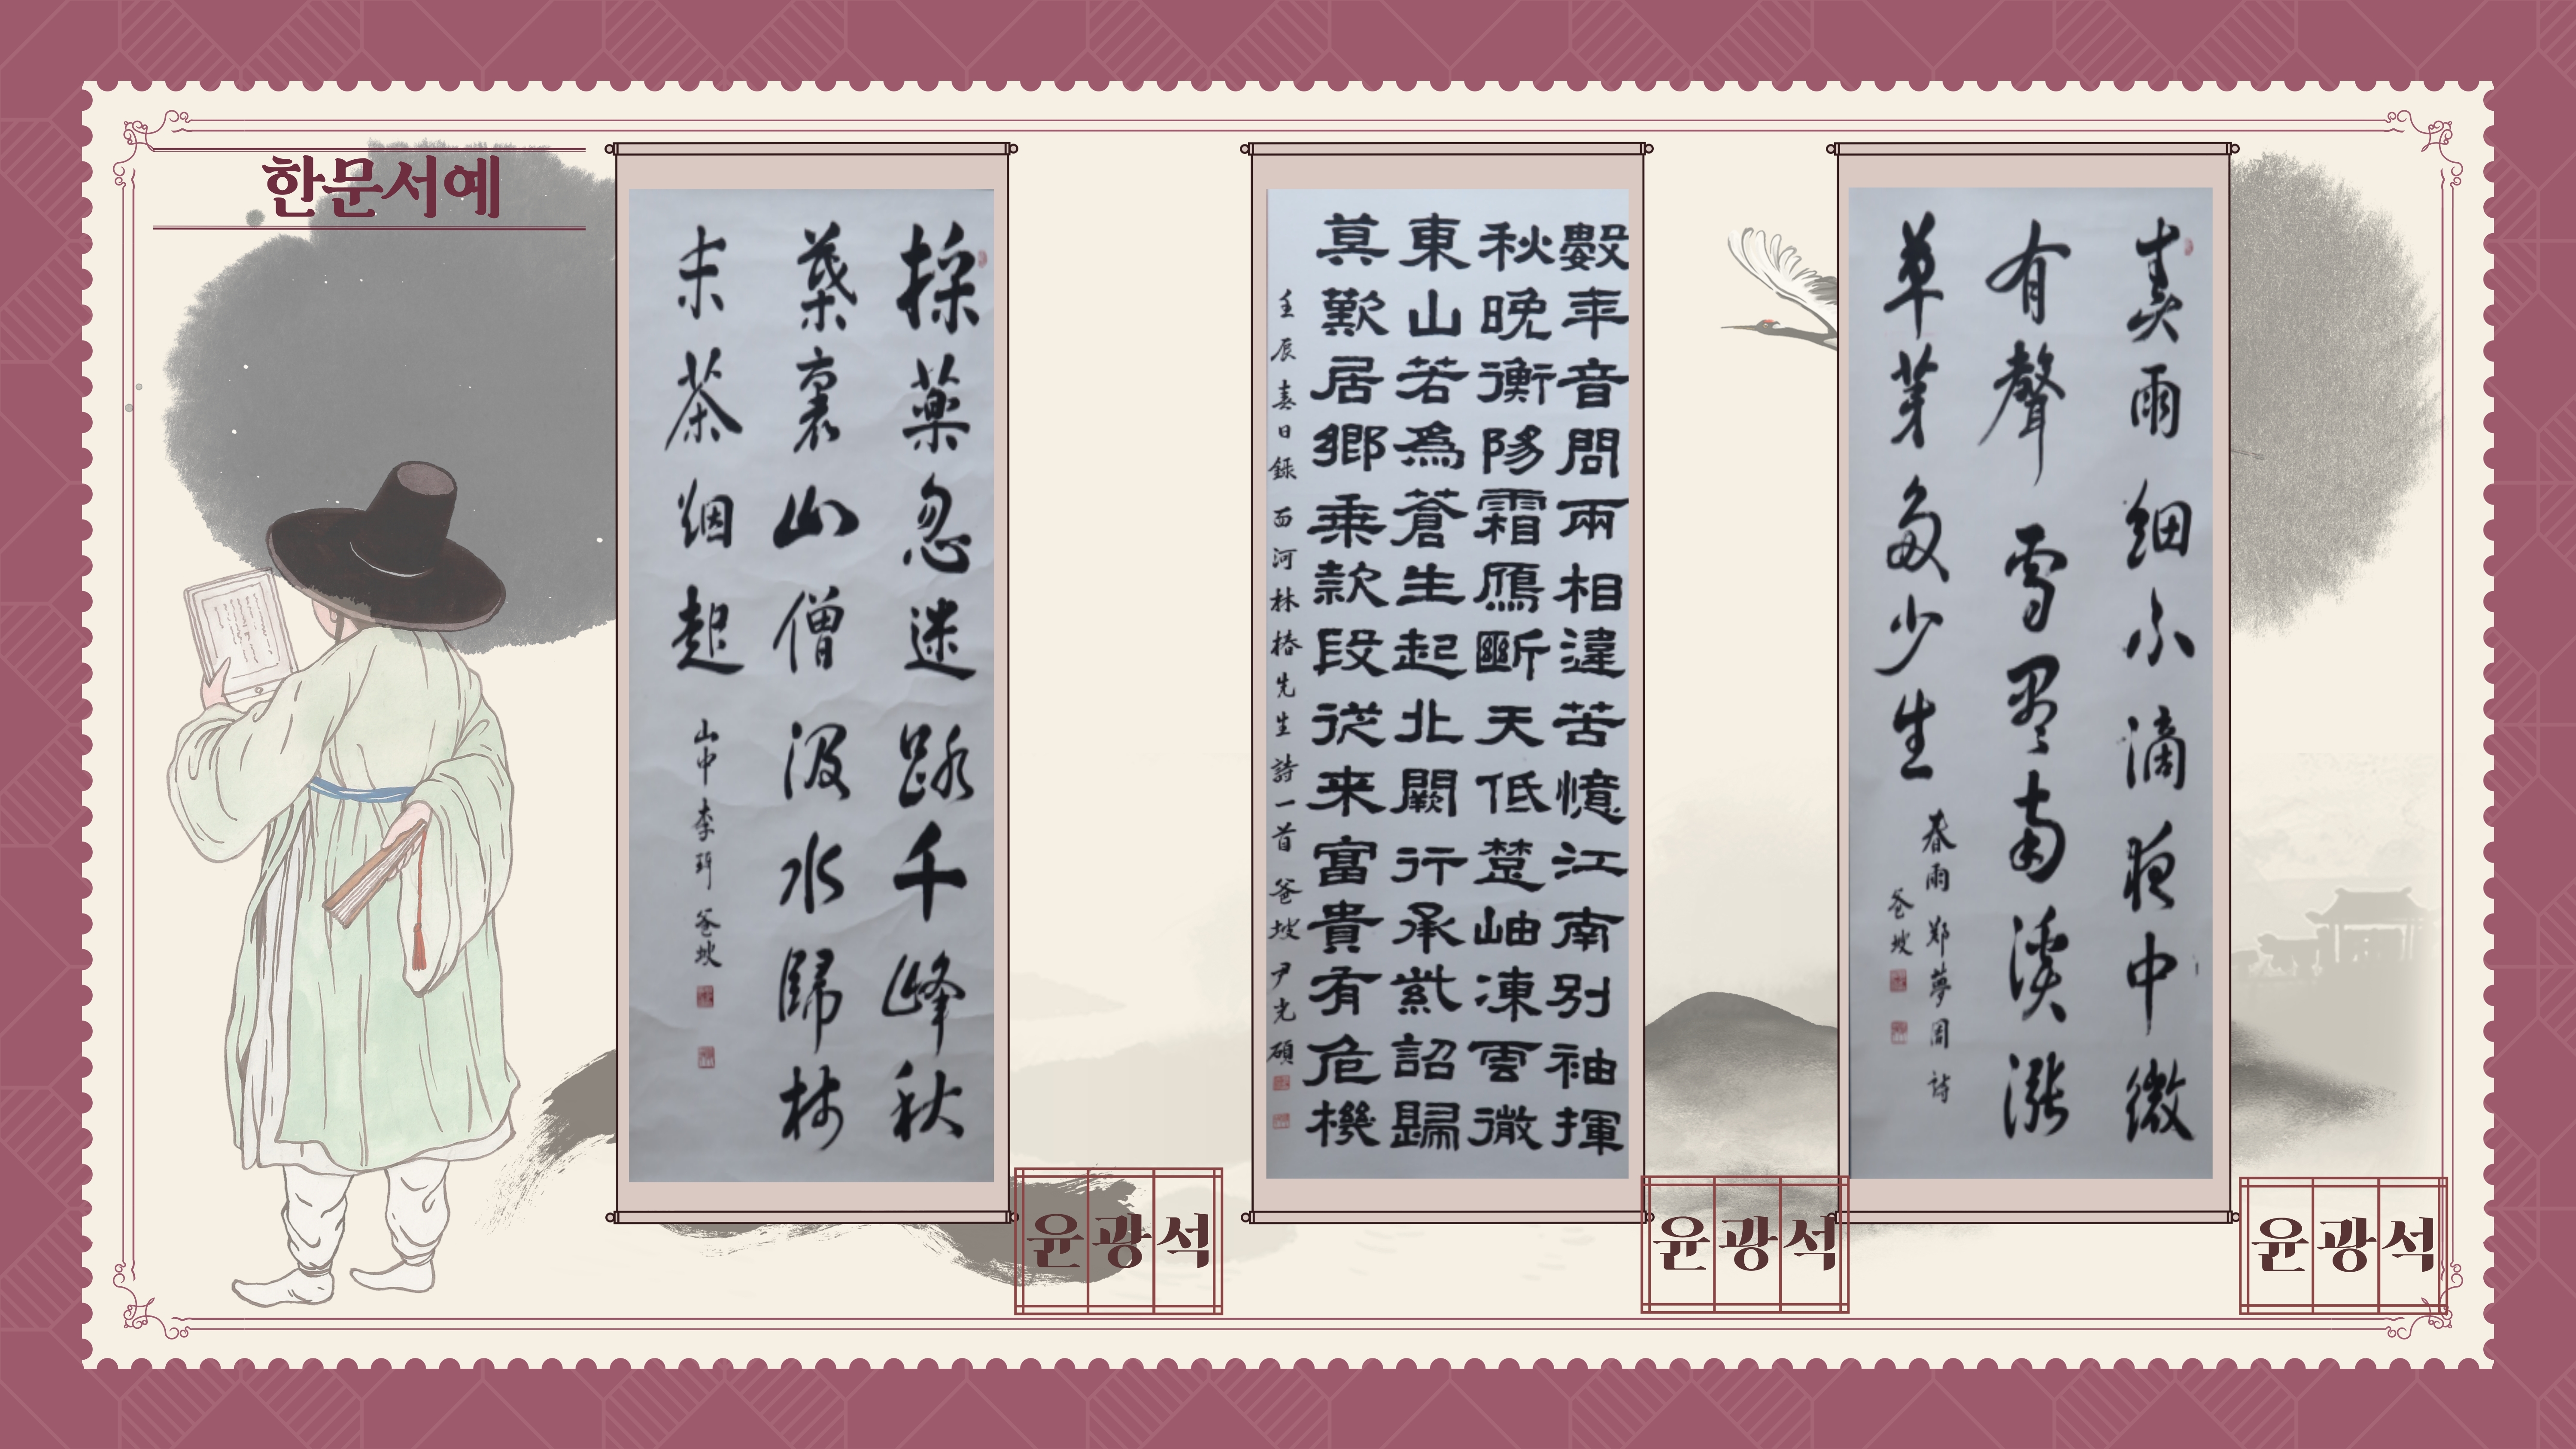 한문서예
採藥忽迷路千峰秋
葉裏山僧汲水歸林
末茶烟起
山中 李珥 爸坡
윤광석
數年音問兩相違苦憶江南別袖揮
秋晩衡陽霜鴈斷天低楚岫凍雲微
東山若為蒼生起北闕行承紫詔歸
莫歎居鄉乘款段從来富貴有危機
壬辰春日録 西河林椿先生詩一首 爸坡 尹光碩
윤광석
春雨細不滴夜中微
有聲雪盡南溪漲
草芽多少生
春雨 鄭夢周 詩
爸坡
윤광석